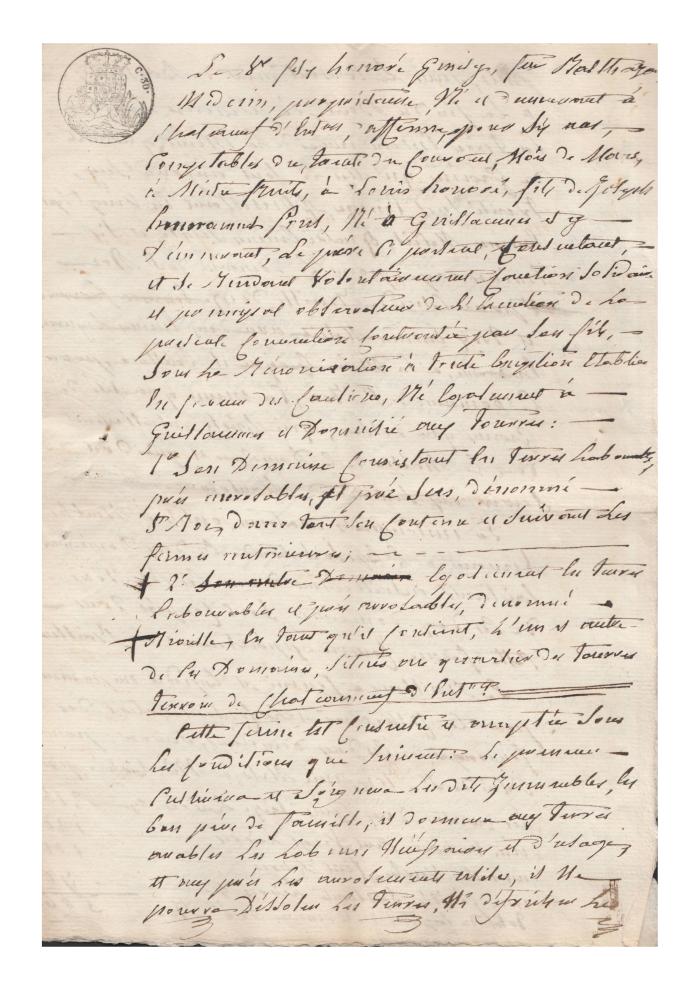 C. 30.
Le Sr felix honoré Ginésy, feu Balthazar
Médecin, propriétaire, Né et demeurant à
Chateauneuf d'Entrs, afferme, pour Six ans,
Comptables du trente du Courant, Mois de Mars,
à Louis honoré, fils de Joseph
Né à Guillaumes et y
Demeurant, Le père ici présent, Consentant,
et Se Rendant Volontairement Caution Solidaire
et principal observateur de l'Execution de La
présente Convention Contractée par Son fils,
Sous La Rénonciation à toute Exception Etablie
En faveur des Cautions, Né également à
Guillaumes et Domicilié aux Tourres:
1° Son Domaine Consistant En terres Labourables,
prés arrosables, et prés Secs, dénommé
dans tout Son Contenu et Suivant Les
fermes antérieures;
2° Son autre Domaine également En terres
Labourables et prés arrosables, dénommé
Miolle, En tout qu'il Contient, L'un et autre
de Ces Domaines, Situés au quartier des Tourres
terroir de Chateauneuf d'Entes
Cette ferme Est Consentie et acceptée Sous
Les Conditions qui Suivent: Le preneur
Cultivera et Soignera Les dits Immeubles, En
bon père de famille, il donnera aux terres
arables Les Labours Nécessaires et d'usage,
et aux prés Les arrosements utiles, il Ne
pourra Déssoler Les terres, Ni défricher Les